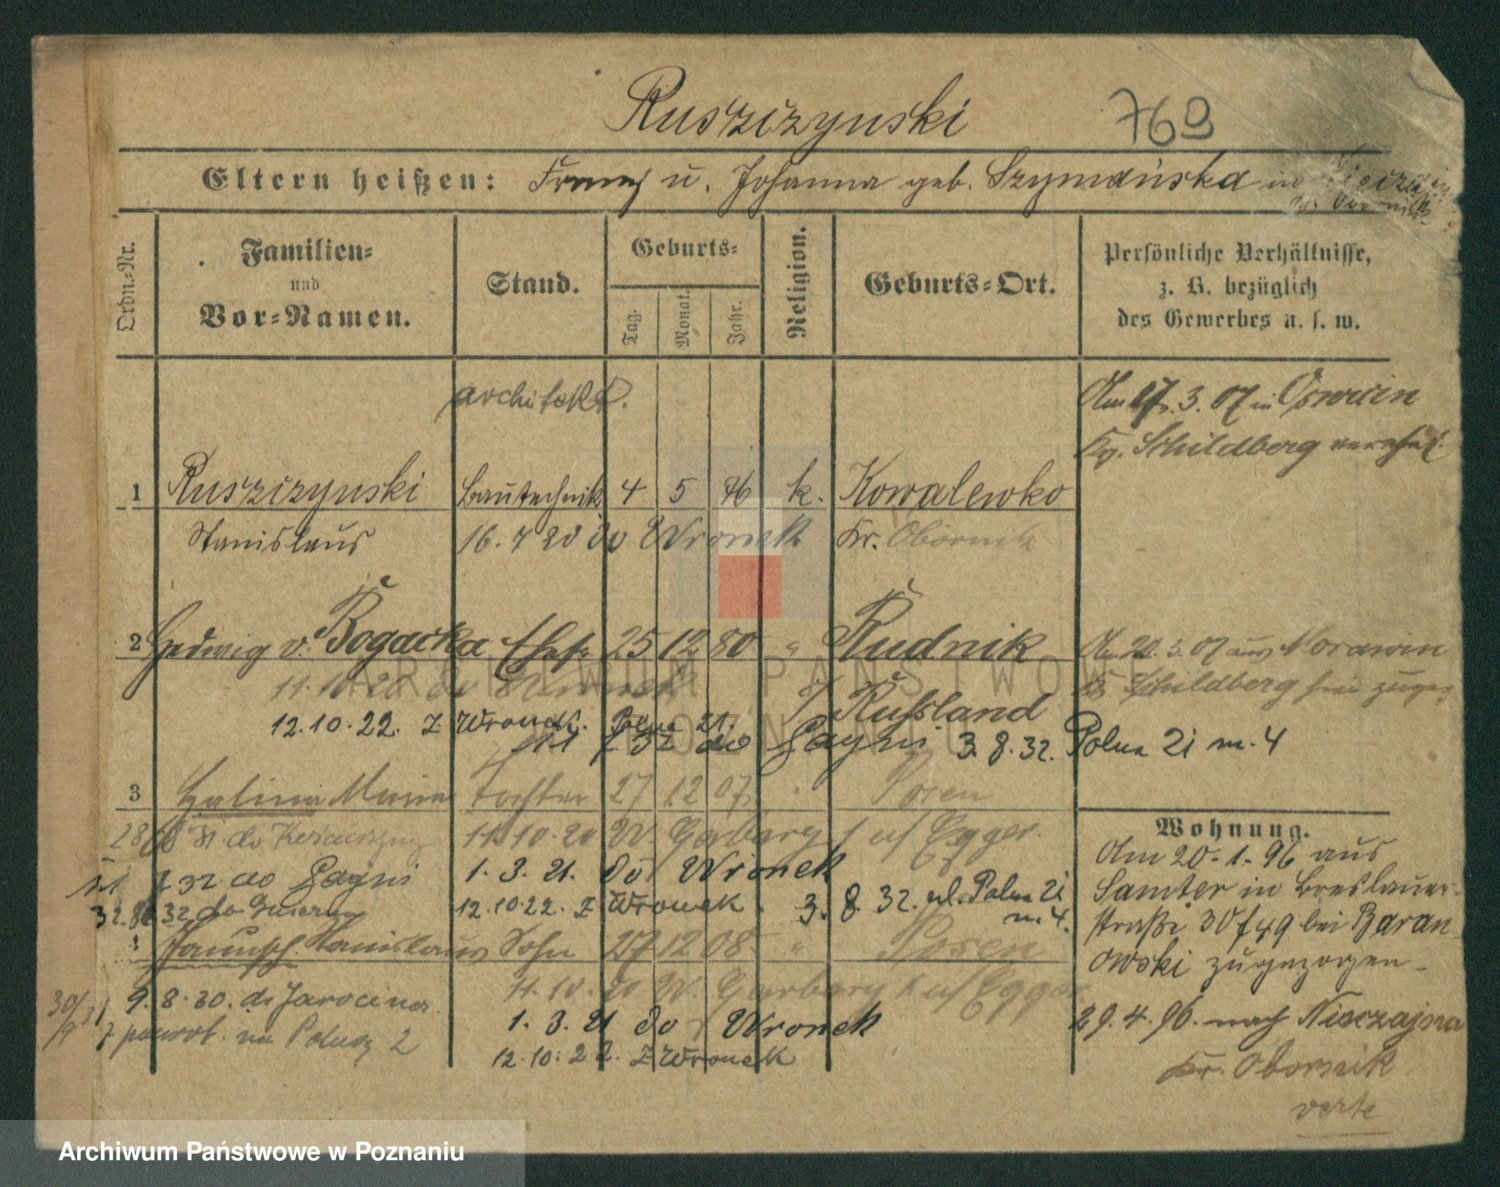 Ruszczynski 769
Eltern heißen: Franz u. Johanna geb. Szymańska in
Ordn.-Nr.
Familien-
und
Vor-Namen.
Stand.
Geburts-
Tag.
Monat.
Jahr.
Religion.
Geburts-Ort.
Persönliche Verhältnisse,
z. B. bezüglich
des Gewerbes u. s. w.
architekt.
Am 27.3.07 in
Schildberg
1 Ruszczynski Bautechnik 4 5 76 k. Kowalewko
Stanislaus 16.7 20 do Wronek Kr. Obornik
2 Hedwig v. Bogacka Ehefr. 25 12 80 " Rudnik
Am 20.3.07 aus Morawin
11.10.20 Schildberg
i/ Rußland
12.10.22. z Wronek. Polna 21.
32 do 3.8.32. Polna 21 m. 4
3 Halina Maria Tochter 27 12 07 Posen
11.10.20 W. Garbary Egger.
32 do 1.3.21. do Wronek
12.10.22. z Wronek. 3.8.32. ul. Polna 21
m. 4.
Stanislaus Sohn 27 12 08 " Posen
11.10.20 W. Garbary Egger
9.8.30. do Jarocina
1.3.21 do Wronek
powrot. na 2
12.10.22. z Wronek
Wohnung.
Am 20.1.96 aus
Samter in Breslauer-
straße 30/49 bei Baran-
owski zugezogen
29.4.96. nach Nieczajna
Kr. Obornik
verte
ARCHIWUM PAŃSTWOWE
W POZNANIU
Archiwum Państwowe w Poznaniu